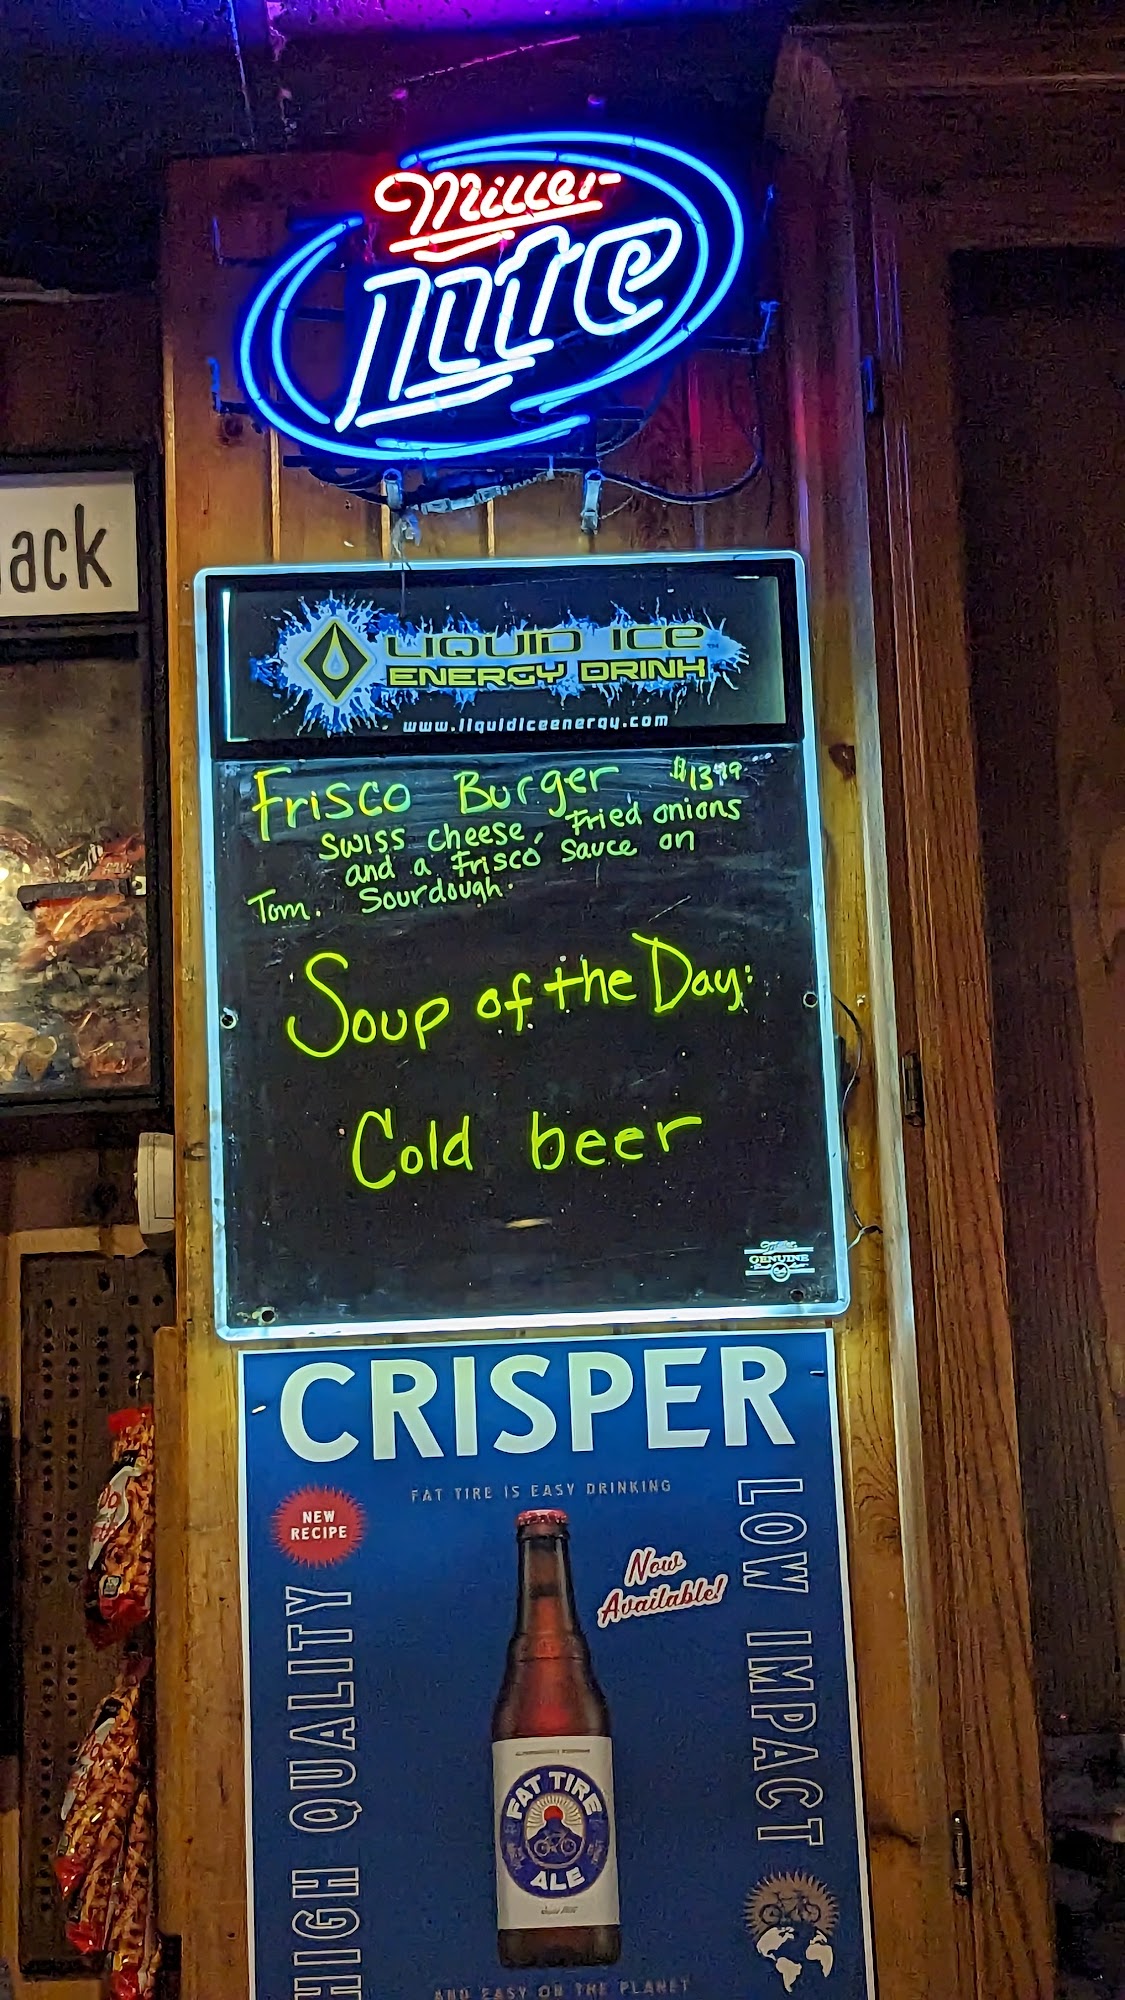 Miller
Lite
ack
LIQUID ICE
ENERGY DRINK
www.liquidiceenergy.com
Frisco Burger $13.99
Swiss cheese, Fried onions
and a Frisco Sauce on
Tom. Sourdough.
Soup of the Day:
Cold beer
Miller
GENUINE
CRISPER
FAT TIRE IS EASY DRINKING
NEW
RECIPE
Now
Available!
HIGH QUALITY
LOW IMPACT
FAT TIRE
ALE
AND EASY ON THE PLANET